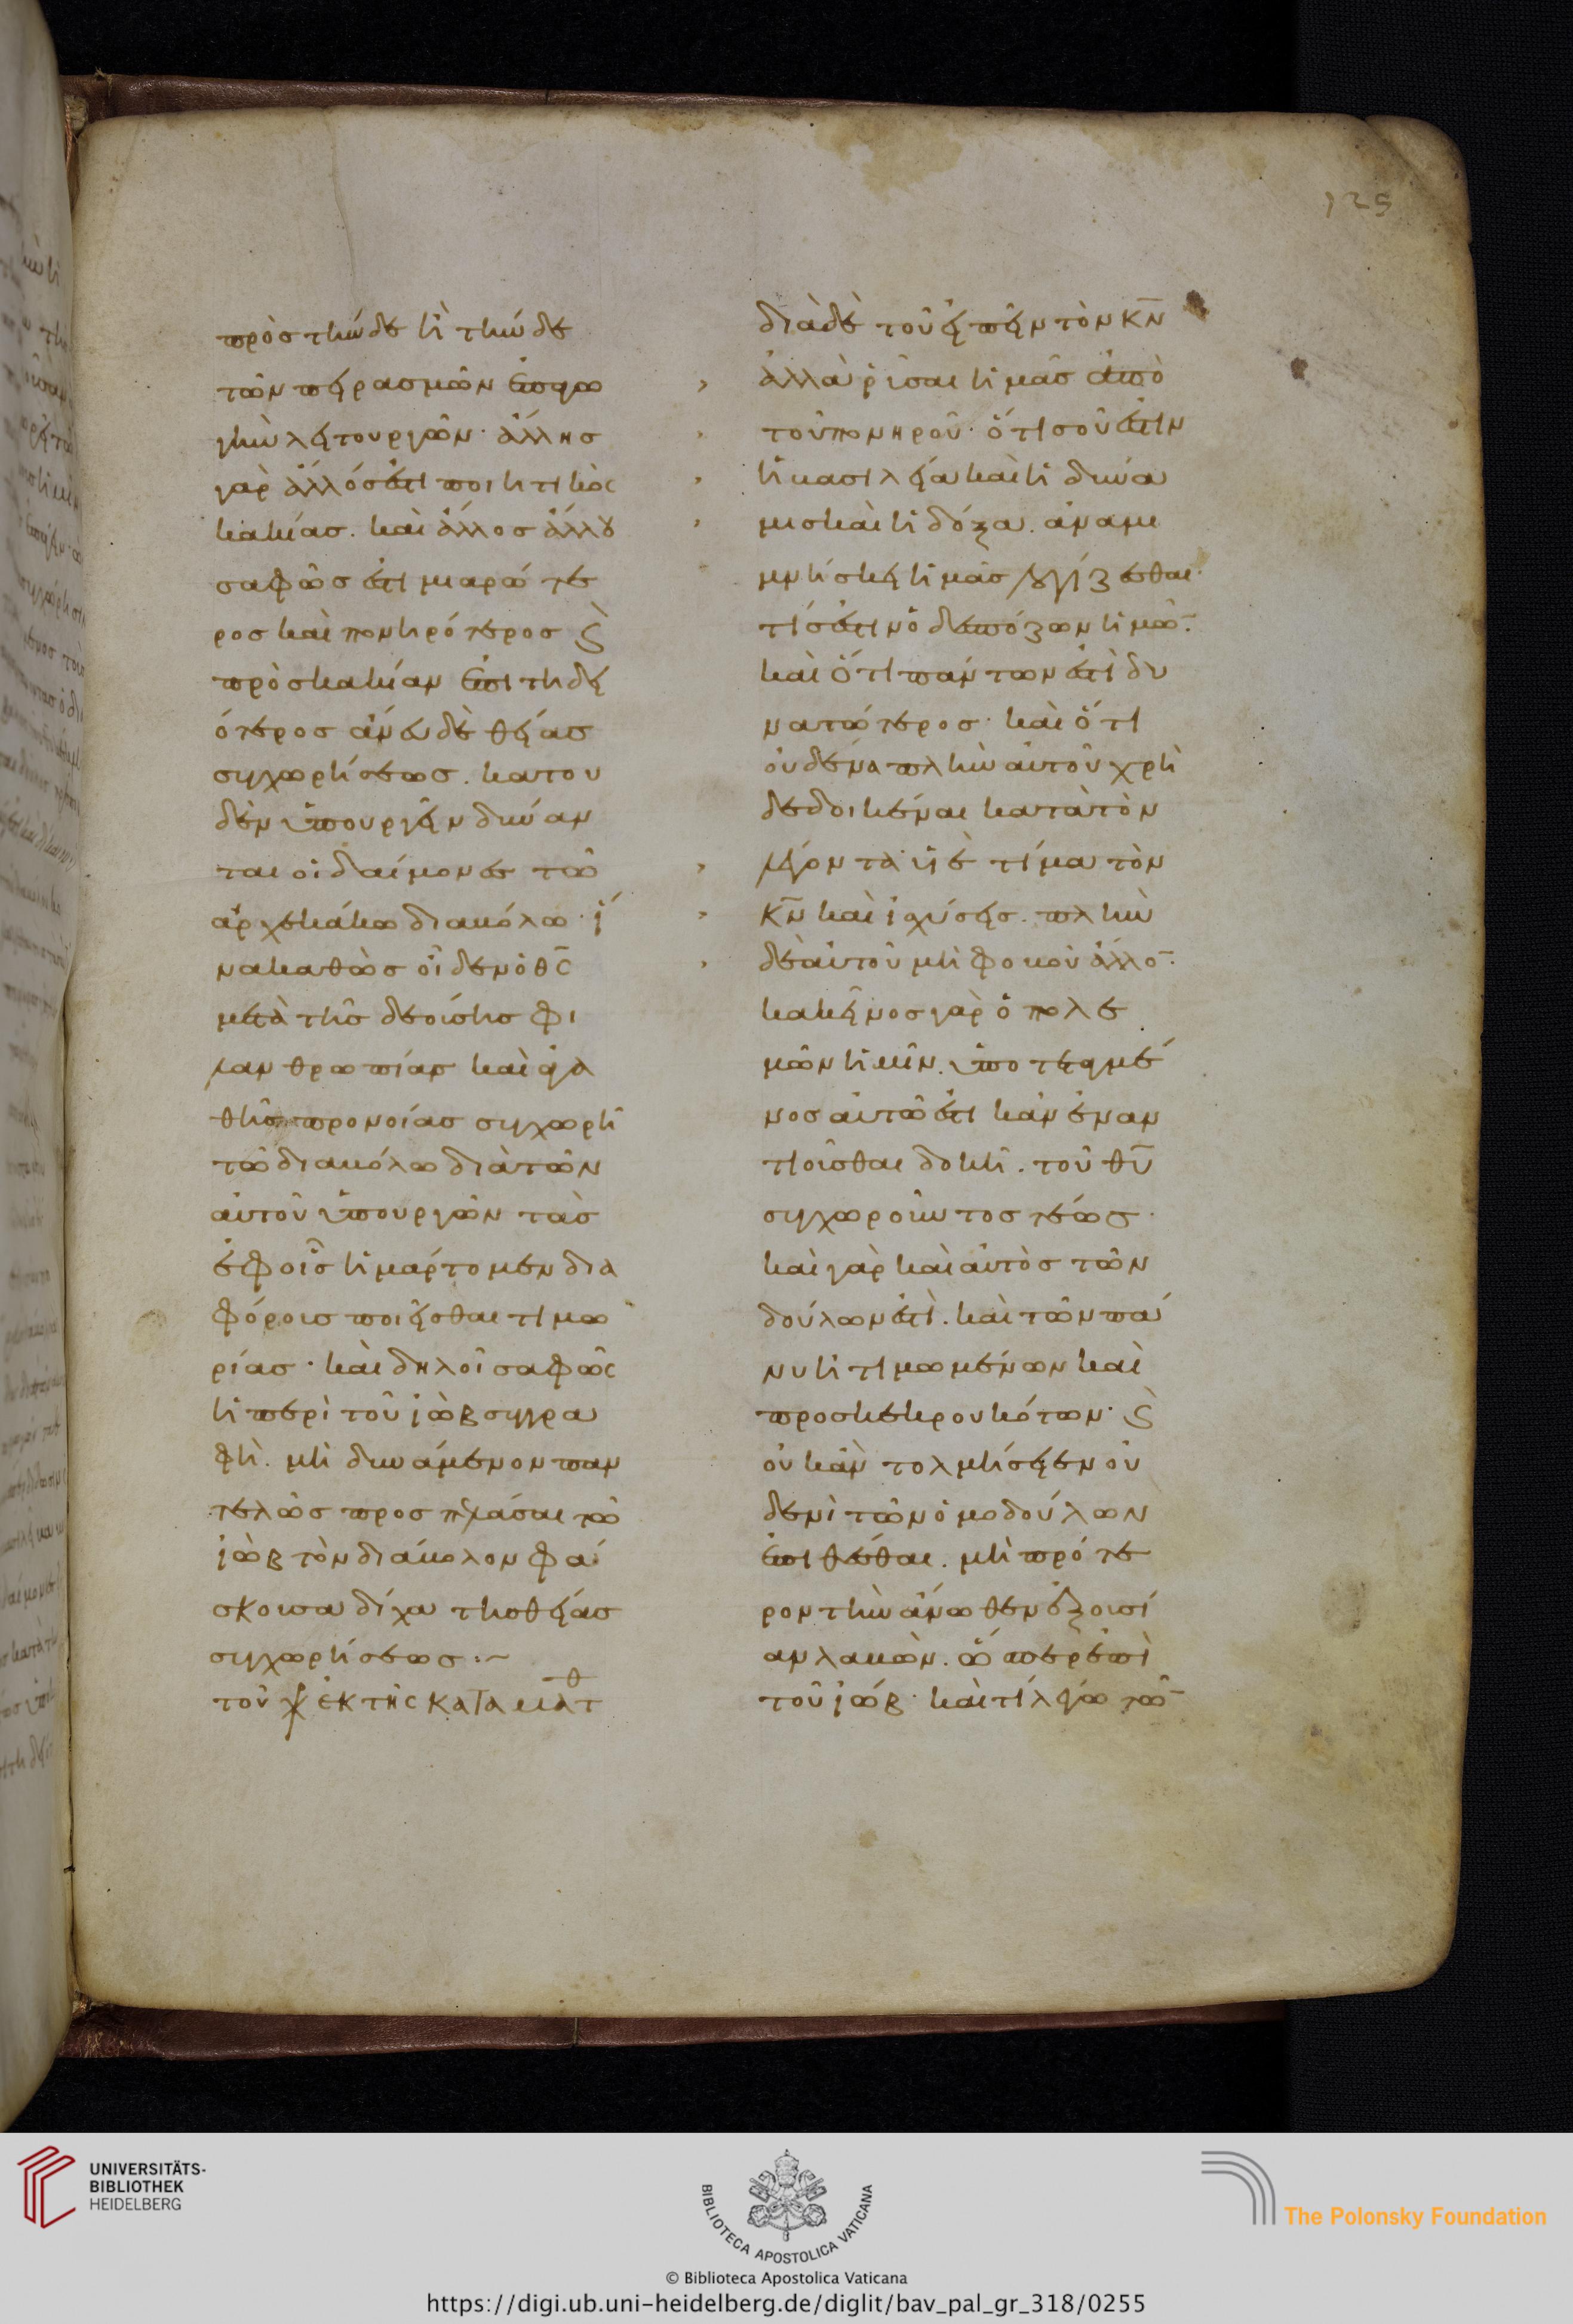 125
πρὸς τήνδε ἢ τήνδε
τῶν πειρασμῶν ἐπαγω
γὴν λειτουργῶν· ἄλλης
γὰρ ἄλλός ἐστι ποιητικὸς
κακίας. καὶ ἄλλος ἄλλου
σαφῶς ἐστι μιαρώτε
ρος καὶ πονηρότερος ϛ̀
πρὸς κακίαν ἐπιτηδει
ότερος ἄνευ δὲ θείας
συγχωρήσεως. κατου
δὲν ὑπουργεῖν δύναν
ται οἱ δαίμονες τῶ
ἀρχεκάκω διαβόλω· ἵ
να καθὼς οἶδεν ὁ θ̅ς̅
μετὰ τῆς δεούσης φι
λανθρωπίας καὶ ἀγα
θῆς προνοίας συγχωρῆ
τῶ διαβόλω διὰ τῶν
αὐτοῦ ὑπουργῶν τὰς
ἐφοῖς ἡμάρτομεν δια
φόροις ποιεῖσθαι τιμω
ρίας· καὶ δηλοῖ σαφῶς
ἡ περὶ τοῦ ἰὼβ συγγρα
φὴ. μὴ δυνάμενον παν
τελῶς προσπελάσαι τῶ
ἰὼβ τὸν διάβολον φά
σκουσα δίχα τῆς θείας
συγχωρήσεως :~
τοῦ χρ ἐκ τῆς κατα ματθ
διὰ δὲ τοῦ εἰπεῖν τὸν κ̅ν̅
ἀλλὰ ῥῦσαι ἡμᾶς ἀπὸ
τοῦ πονηροῦ· ὅτι σοῦ ἐστὶν
ἡ βασιλεία καὶ ἡ δύνα
μις καὶ ἡ δόξα. ἀναμι
μνήσκει ἡμᾶς λογίζεσθαι·
τίς ἐστιν ὁ δεσπόζων ἡμῶ̅·
καὶ ὅτι πάντων ἐστὶ δυ
νατώτερος· καὶ ὅτι
οὐδένα πλὴν αὐτοῦ χρὴ
δεδοικέναι κατὰ τὸν
λέγοντα· υἱὲ τίμα τὸν
κ̅ν̅ καὶ ἰσχύσεις. πλὴν
δὲ αὐτοῦ μὴ φοβοῦ ἄλλο̅·
κακεῖνος γὰρ ὁ πολε
μῶν ἡμῖν. ὑποτεταγμέ
νος αὐτῶ ἐστι κἂν ἐναν
τιοῦσθαι δοκῆ. τοῦ θ̅υ̅
συγχωροῦντος τέως·
καὶ γὰρ καὶ αὐτὸς τῶν
δούλων ἐστὶ. καὶ τῶν πά
νυ ἠτιμωμένων καὶ
προσκεκρουκότων· ϛ̀
οὐκ ἂν τολμήσειεν οὐ
δενὶ τῶν ὁμοδούλων
ἐπιθέσθαι. μὴ πρότε
ρον τὴν ἄνωθεν ἐξουσί
αν λαβών. ὥσπερ ἐπὶ
τοῦ ἰώβ· καὶ τί λέγω τῶ̅
UNIVERSITÄTS-
BIBLIOTHEK
HEIDELBERG
BIBLIOTECA APOSTOLICA VATICANA
The Polonsky Foundation
© Biblioteca Apostolica Vaticana
https://digi.ub.uni-heidelberg.de/diglit/bav_pal_gr_318/0255